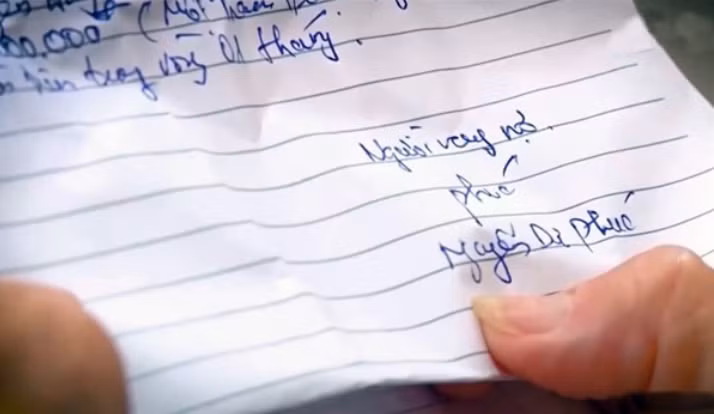 00.000 (Một trăm
tiền trong vòng 01 tháng.
Người vay nợ.
phúc
Nguyễn Dư Phúc